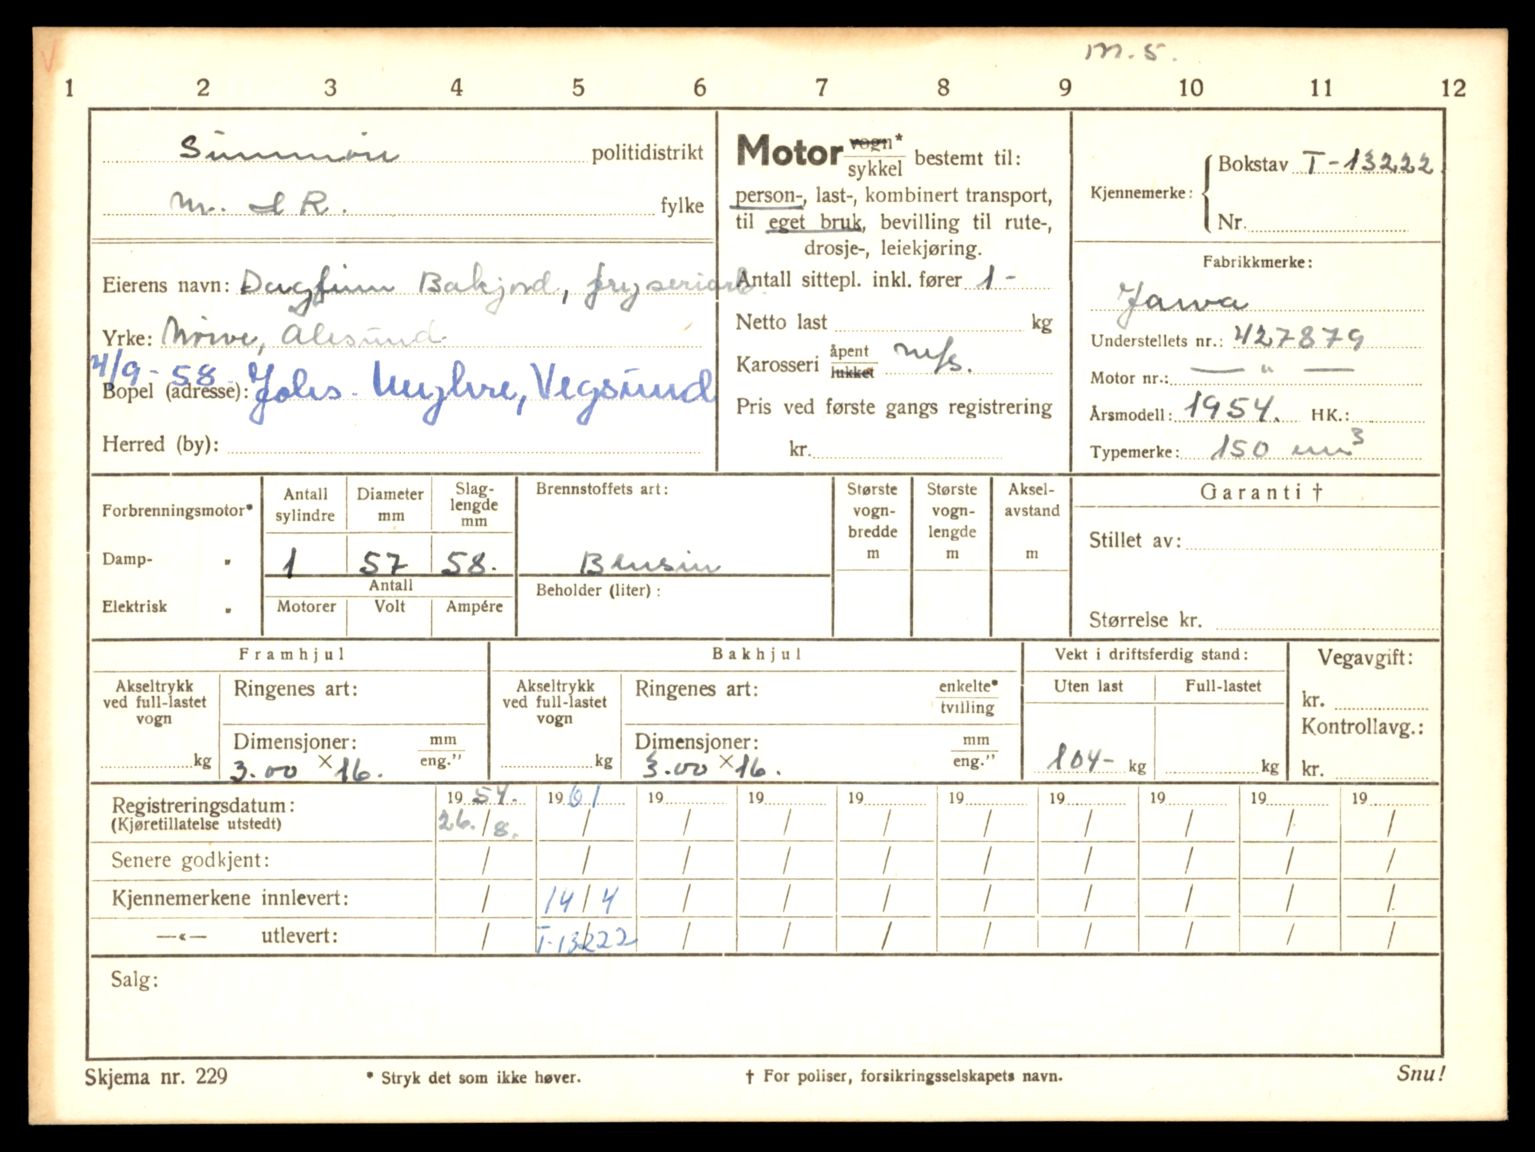 m. 5.
1 2 3 4 5 6 7 8 9 10 11 12
Sunnmøre politidistrikt
M. & R. fylke
Eierens navn: Dagfinn Bakjord, fryseriarb.
Yrke: Nørve, Ålesund
4/9-58 Johs. Myhre, Vegsund
Bopel (adresse):
Herred (by):
Motor vogn* / sykkel bestemt til:
person-, last-, kombinert transport,
til eget bruk, bevilling til rute-,
drosje-, leiekjøring.
Antall sittepl. inkl. fører 1-
Netto last kg
Karosseri åpent / lukket
Pris ved første gangs registrering
kr.
Kjennemerke: Bokstav T-13222
Nr.
Fabrikkmerke:
Jawa
Understellets nr.: 427879
Motor nr.: — " —
Årsmodell: 1954. HK.:
Typemerke: 150 cm³
Forbrenningsmotor*
Damp- "
Elektrisk "
Antall sylindre
Diameter mm
Slag-lengde mm
1 57 58.
Antall
Motorer Volt Ampére
Brennstoffets art:
Bensin
Beholder (liter):
Største vogn-bredde m
Største vogn-lengde m
Aksel-avstand m
Garanti †
Stillet av:
Størrelse kr.
Framhjul
Akseltrykk ved full-lastet vogn
kg
Ringenes art:
Dimensjoner: mm / eng."
3.00 × 16.
Bakhjul
Akseltrykk ved full-lastet vogn
kg
Ringenes art: enkelte* / tvilling
Dimensjoner: mm / eng."
3.00 × 16.
Vekt i driftsferdig stand:
Uten last Full-lastet
104- kg kg
Vegavgift:
kr.
Kontrollavg.:
kr.
Registreringsdatum: 1954. 1961 19 19 19 19 19 19 19 19
(Kjøretillatelse utstedt) 26./8. / / / / / / / / /
Senere godkjent: / / / / / / / / / /
Kjennemerkene innlevert: / 14/4 / / / / / / / /
—«— utlevert: / T-13222 / / / / / / / /
Salg:
Skjema nr. 229 * Stryk det som ikke høver. † For poliser, forsikringsselskapets navn. Snu!